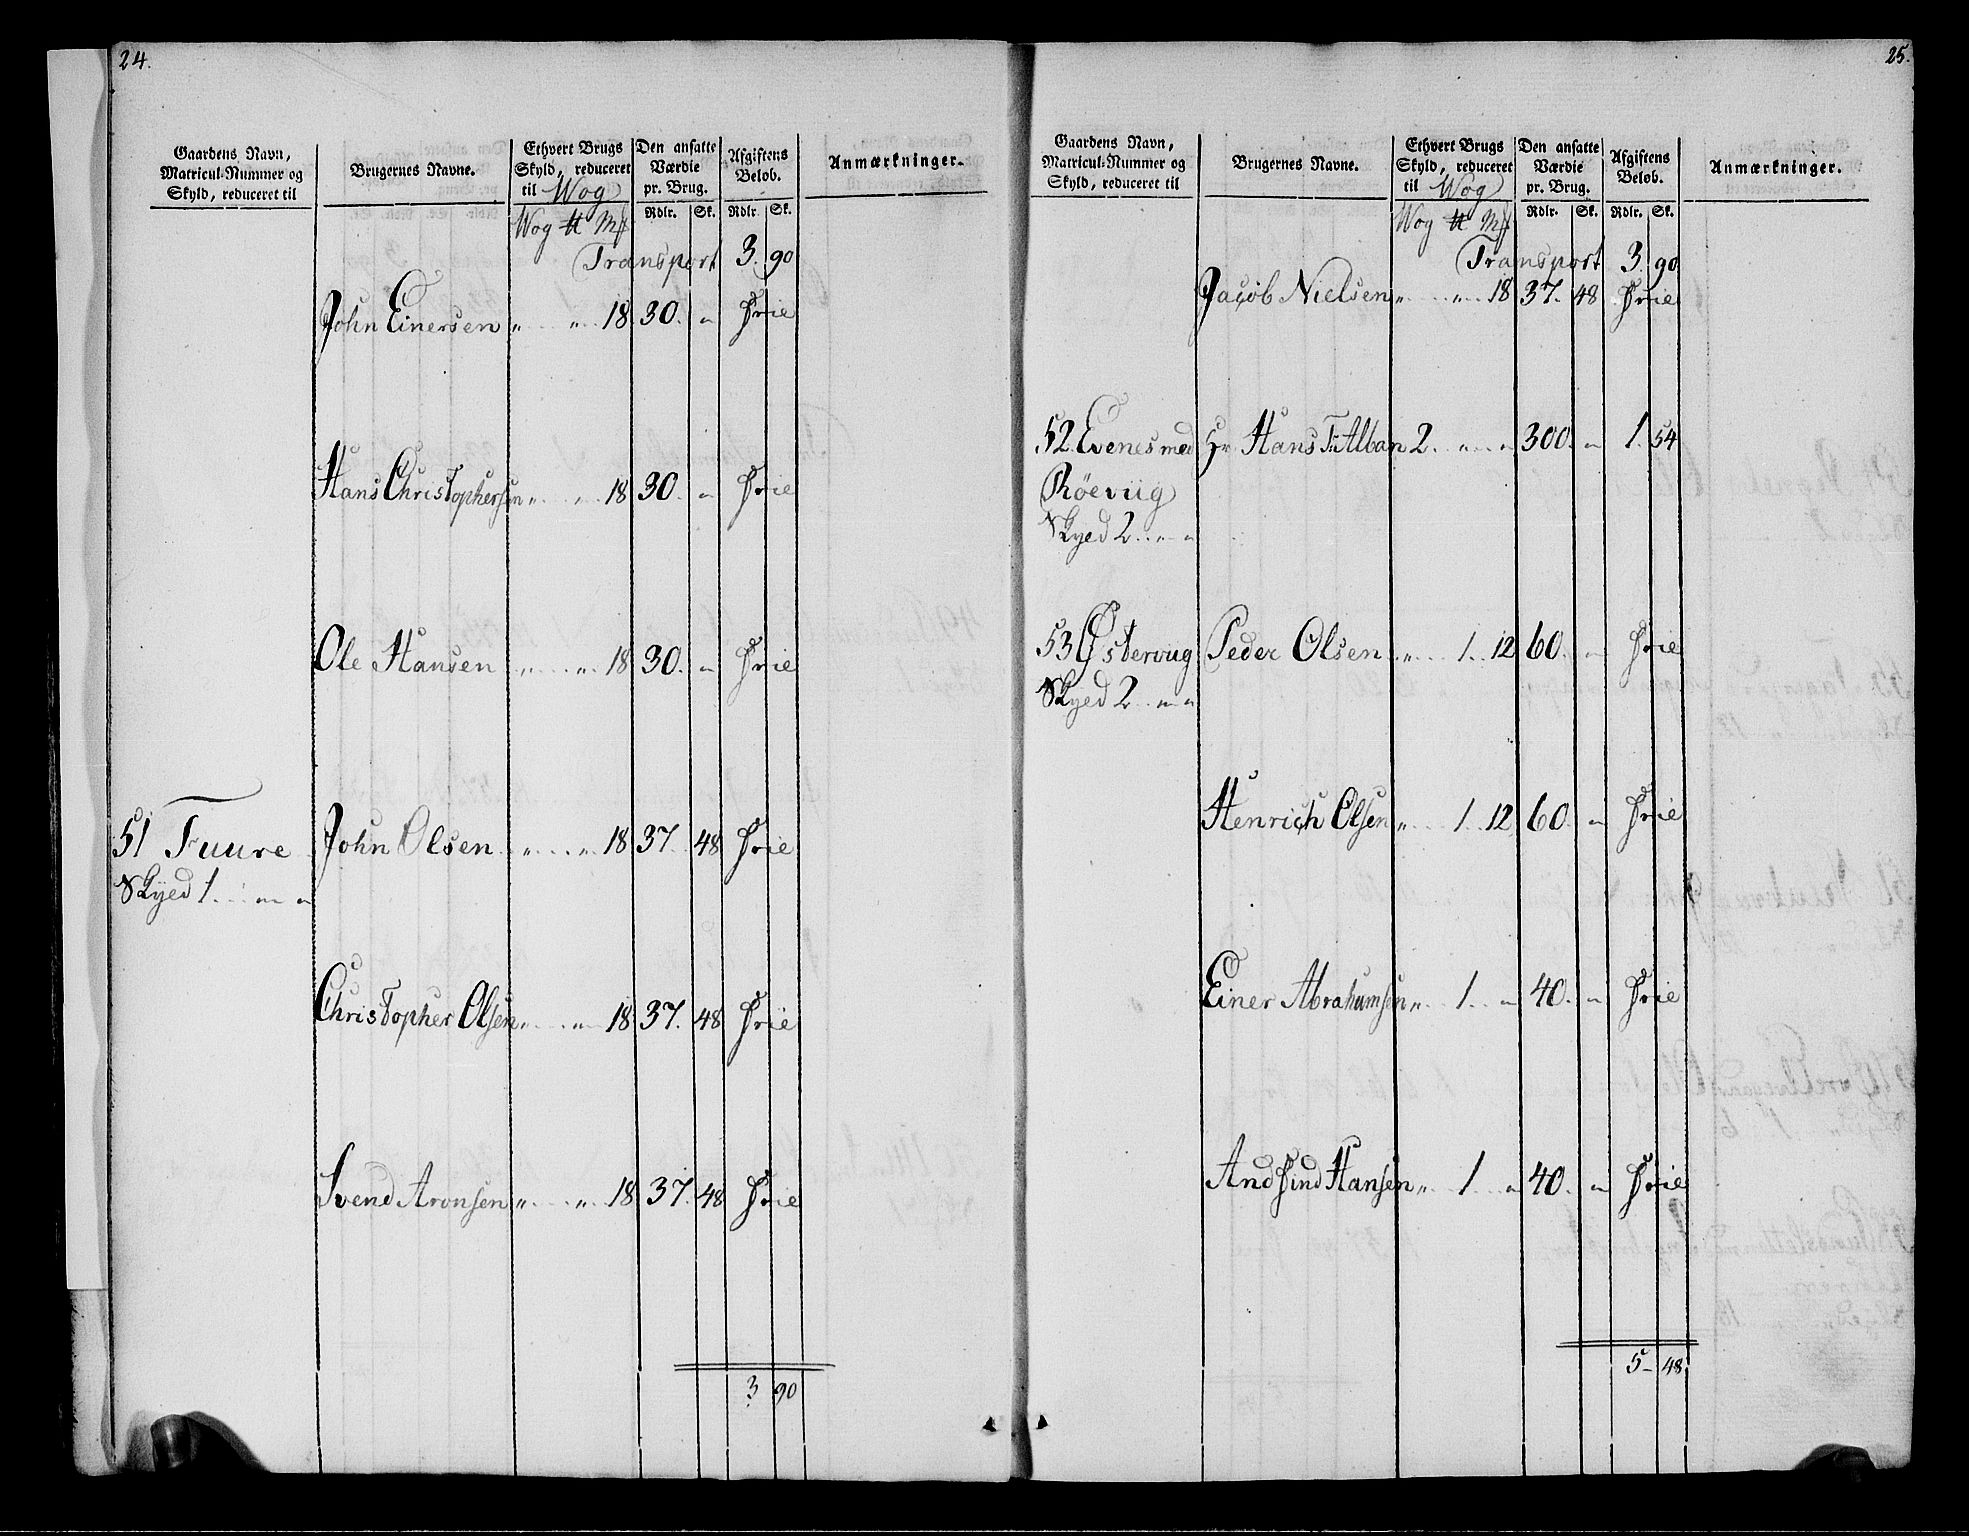 24.
Gaardens Navn, Matricul-Nummer og Skyld, reduceret til
Brugernes Navne.
Ethvert Brugs Skyld, reduceret til Wog
Den ansatte Værdie pr. Brug.
Afgiftens Beløb.
Anmærkninger.
Wog ℔ Mk Rdlr. Sk. Rdlr. Sk.
Transport 3. 90
John Einersen „ „ 18 30. „ Frie
Hans Christophersen „ „ 18 30. „ Frie
Ole Hansen „ „ 18 30. „ Frie
51 Fuure John Olsen „ „ 18 37. 48 Frie
Skyed 1. „ „
Christopher Olsen „ „ 18 37. 48 Frie
Svend Aronsen „ „ 18 37. 48 Frie
3 90
25.
Gaardens Navn, Matricul-Nummer og Skyld, reduceret til
Brugernes Navne.
Ethvert Brugs Skyld, reduceret til Wog
Den ansatte Værdie pr. Brug.
Afgiftens Beløb.
Anmærkninger.
Wog ℔ Mk Rdlr. Sk. Rdlr. Sk.
Transport 3. 90
Jacob Nielsen „ „ 18 37. 48 Frie
52 Evenes med Hr. Hans T. Alban 2. „ „ 300. „ 1. 54
Röeviig
Skyed 2. „ „
53 Østerviig Peder Olsen „ 1. 12 60. „ Frie
Skyed 2. „ „
Henrich Olsen „ 1. 12 60. „ Frie
Einer Abrahamsen „ 1. „ 40. „ Frie
And find Hansen „ 1. „ 40. „ Frie
5 - 48